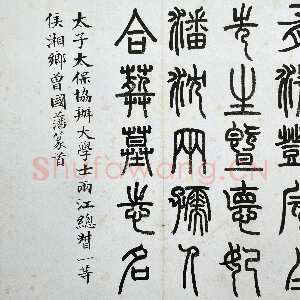 先生暨悳妃
潘沈兩孺人
合葬墓志名
太子太保協辦大學士兩江總督一等
侯湘鄉曾國藩篆首
Shufawang.CN